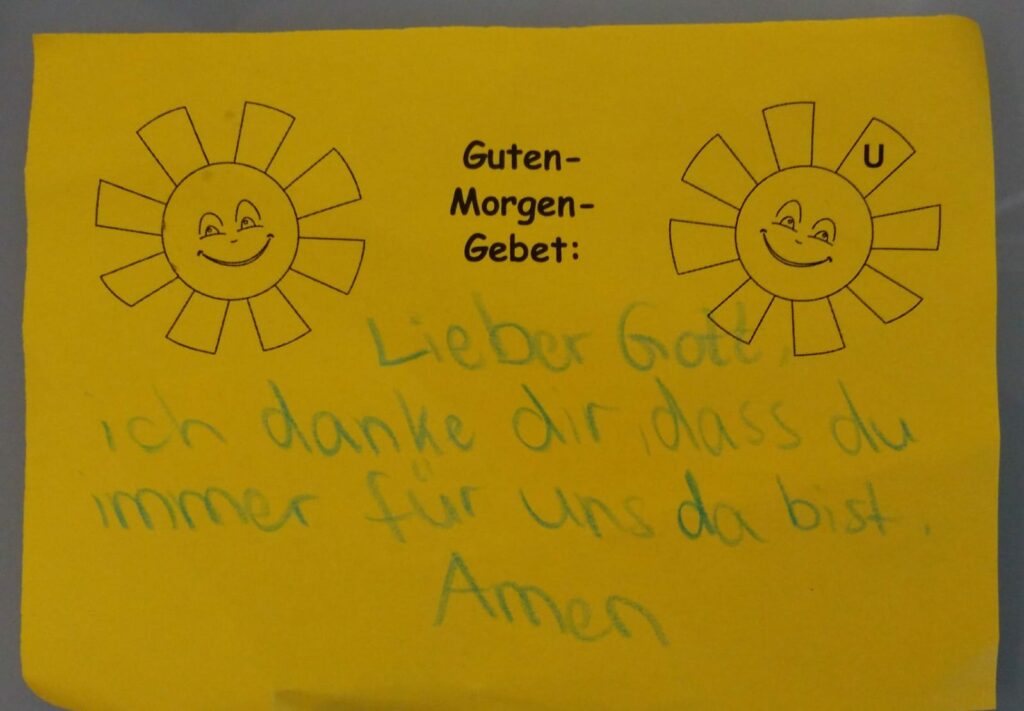 Guten-
Morgen-
Gebet:
U
Lieber Gott,
ich danke dir, dass du
immer für uns da bist.
Amen